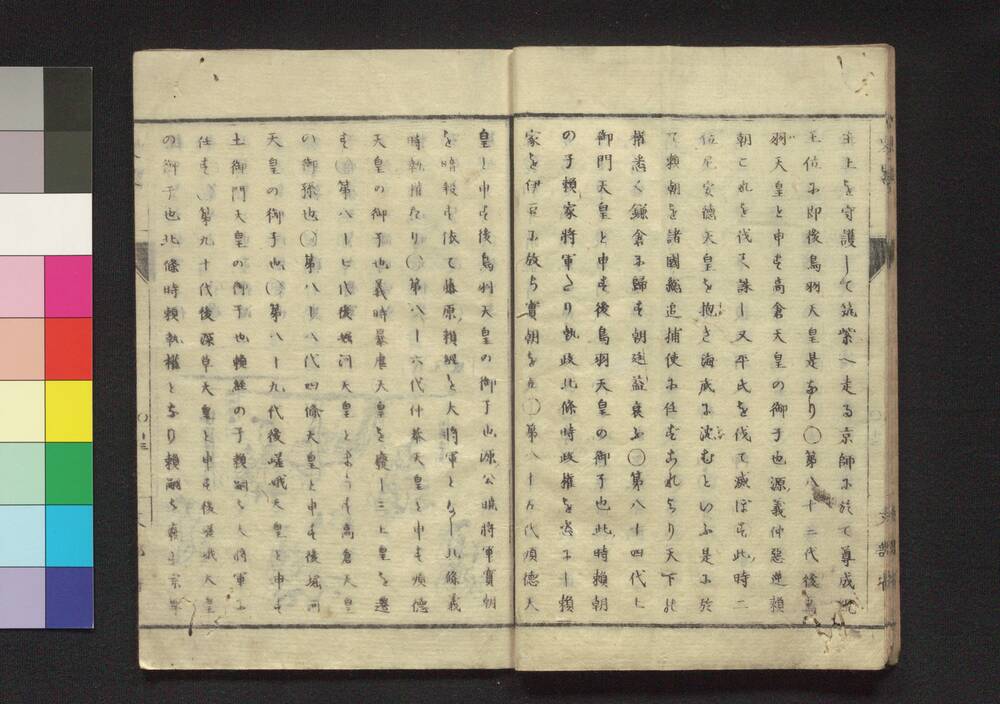 主上を守護して筑紫へ走る京師に於て尊成親
王位に即後鳥羽天皇是なり○第八十二代後鳥
羽天皇と申す高倉天皇の御子也源義仲惡逆賴
朝これを伐て誅し又平氏を伐て滅ぼす此時二
位尼安德天皇を抱き海底に沈むといふ是に於
て賴朝を諸國總追捕使に任ずこれより天下の
權悉く鎌倉に歸す朝廷益衰ふ○第八十四代土
御門天皇と申す後鳥羽天皇の御子也此時賴朝
の子賴家將軍たり執政北條時政權を恣にし賴
家を伊豆に放ち實朝を立○第八十五代順德天
皇と申す後鳥羽天皇の御子也源公曉將軍實朝
を暗殺す依て藤原賴經を大將軍となし北條義
時執權たり○第八十六代仲恭天皇と申す順德
天皇の御子也義時暴虐天皇を廢し三上皇を遷
す○第八十七代後堀河天皇とまうす高倉天皇
の御孫也○第八十八代四條天皇と申す後堀河
天皇の御子也○第八十九代後嵯峨天皇と申す
土御門天皇の御子也賴經の子賴嗣を大將軍に
任ず○第九十代後深草天皇と申す後嵯峨天皇
の御子也北條時賴執權となり賴嗣を
○十三